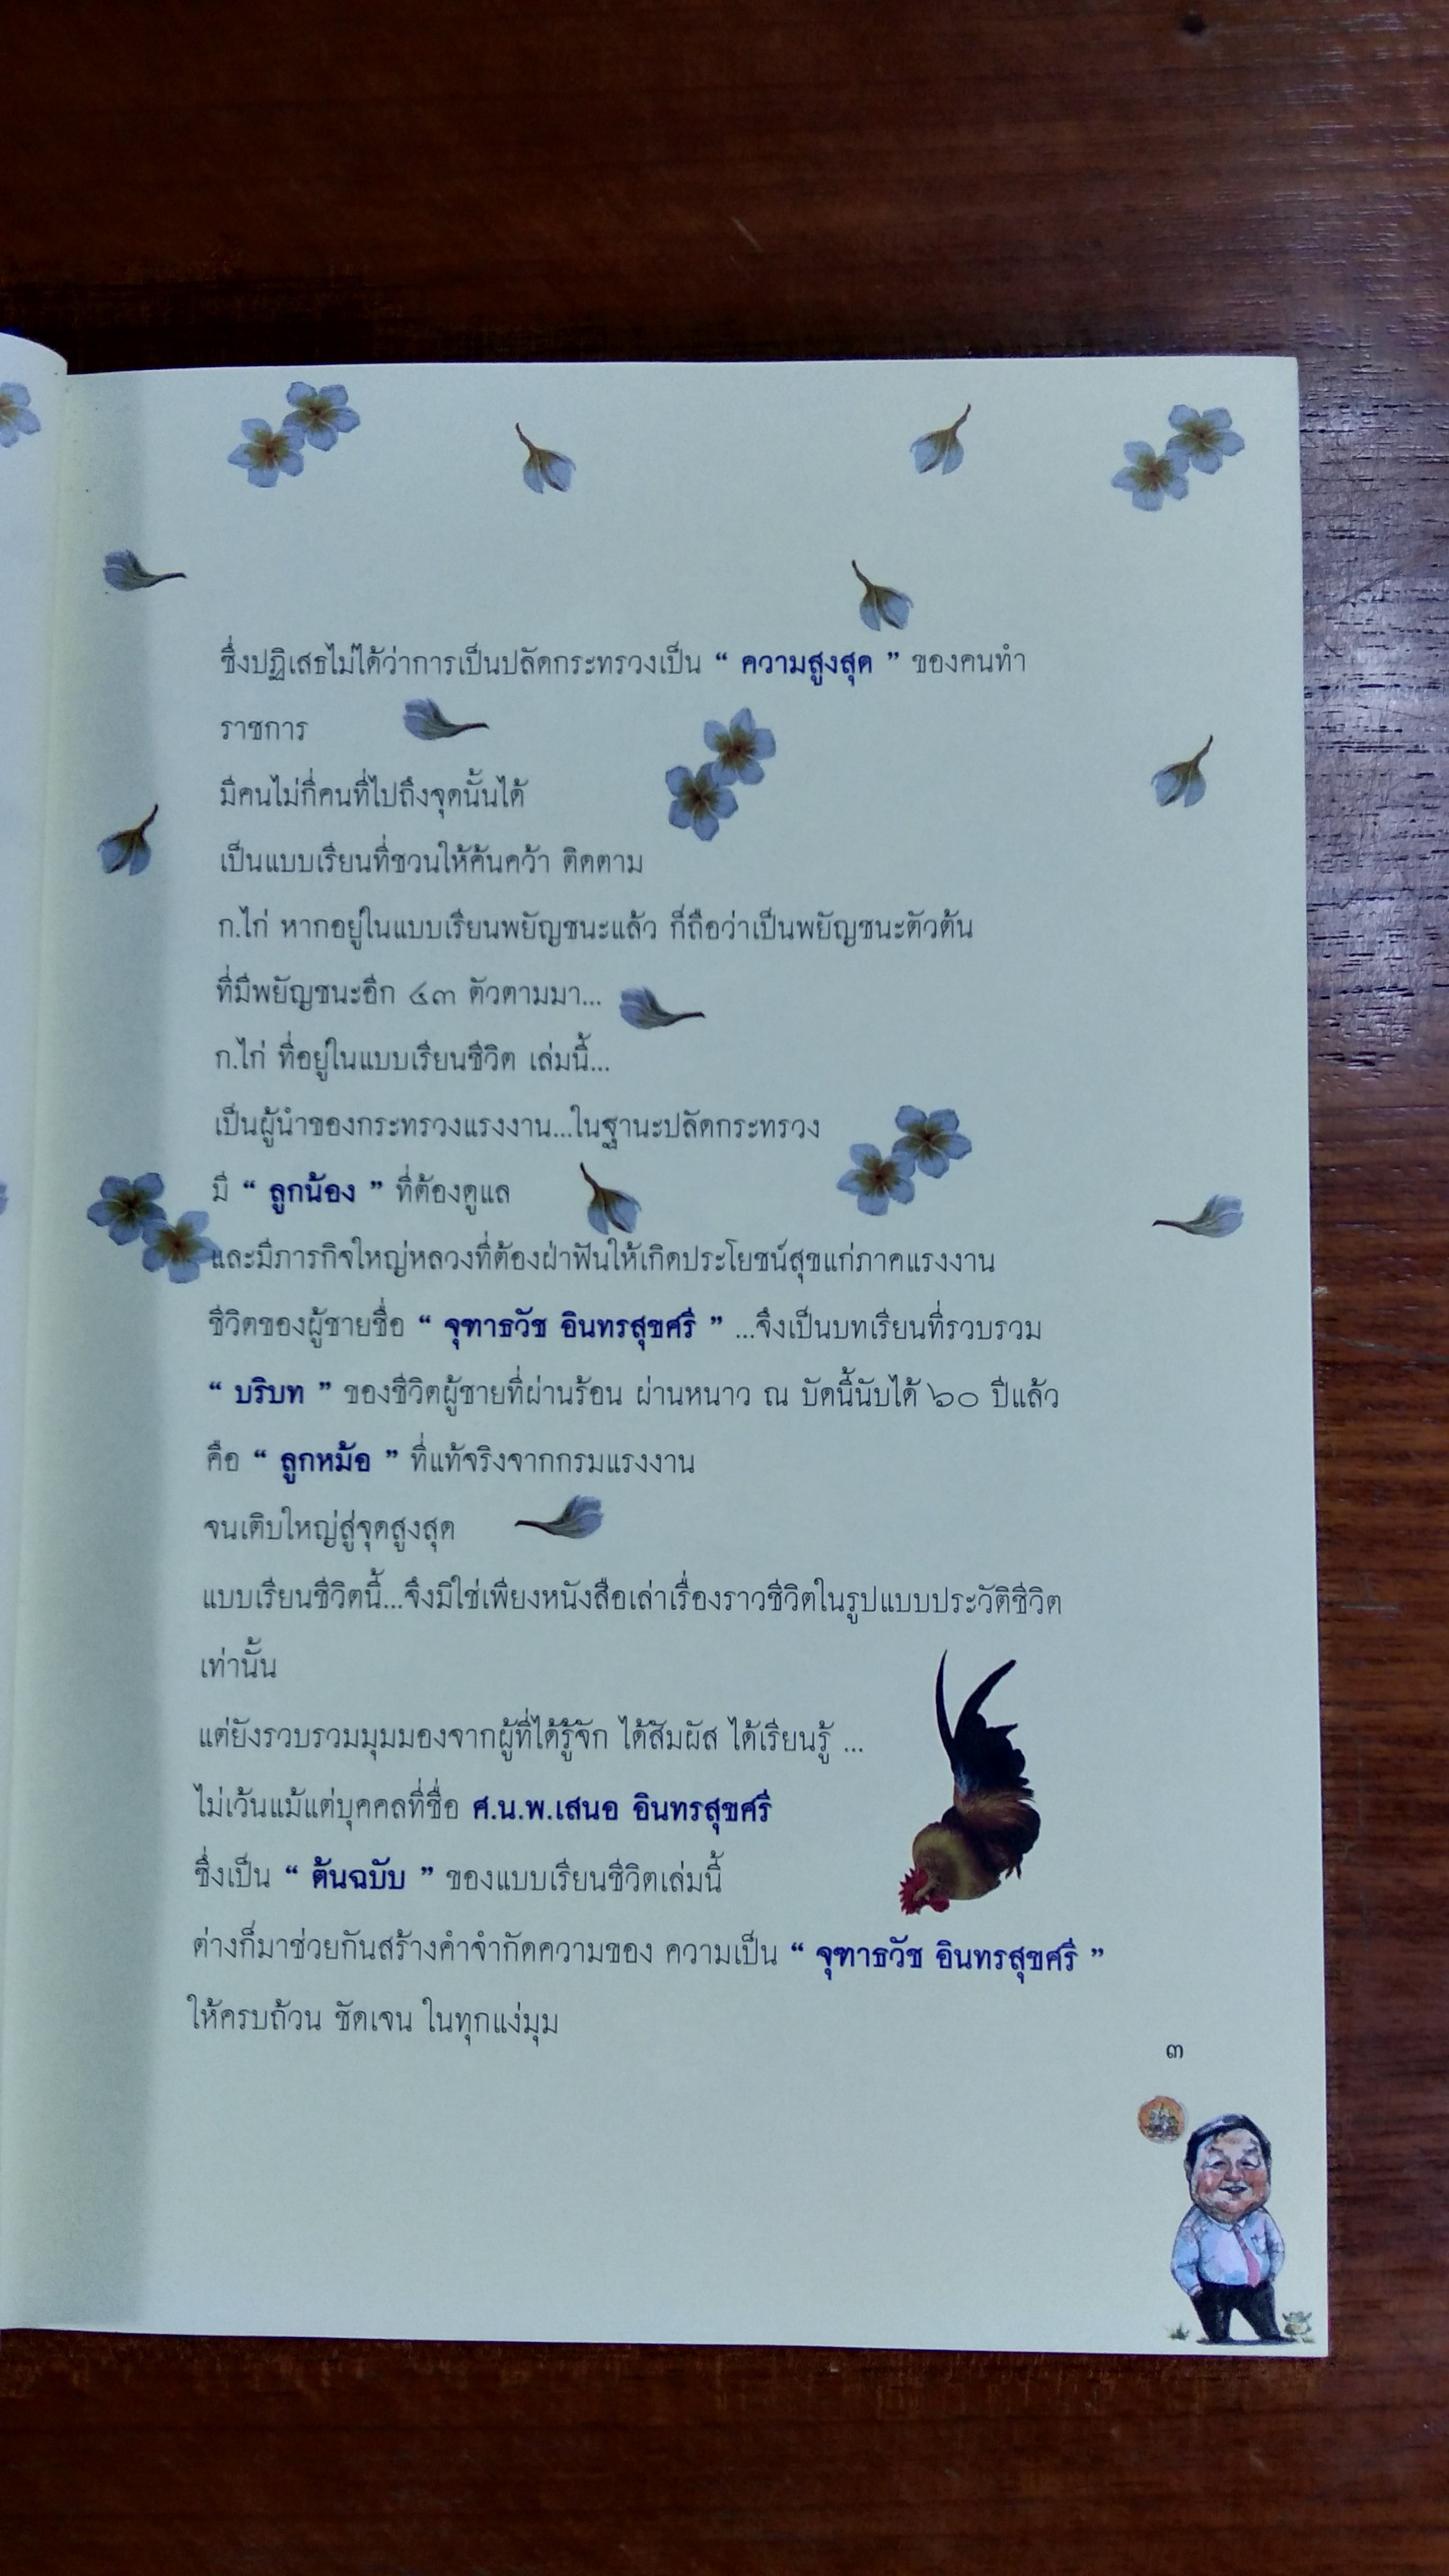 ซึ่งปฏิเสธไม่ได้ว่าการเป็นปลัดกระทรวงเป็น “ ความสูงสุด ” ของคนทำ
ราชการ
มีคนไม่กี่คนที่ไปถึงจุดนั้นได้
เป็นแบบเรียนที่ชวนให้ค้นคว้า ติดตาม
ก.ไก่ หากอยู่ในแบบเรียนพยัญชนะแล้ว ก็ถือว่าเป็นพยัญชนะตัวต้น
ที่มีพยัญชนะอีก ๔๓ ตัวตามมา...
ก.ไก่ ที่อยู่ในแบบเรียนชีวิต เล่มนี้...
เป็นผู้นำของกระทรวงแรงงาน...ในฐานะปลัดกระทรวง
มี “ ลูกน้อง ” ที่ต้องดูแล
และมีภารกิจใหญ่หลวงที่ต้องฝ่าฟันให้เกิดประโยชน์สุขแก่ภาคแรงงาน
ชีวิตของผู้ชายชื่อ “ จุฑาธวัช อินทรสุขศรี ” ...จึงเป็นบทเรียนที่รวบรวม
“ บริบท ” ของชีวิตผู้ชายที่ผ่านร้อน ผ่านหนาว ณ บัดนี้นับได้ ๖๐ ปีแล้ว
คือ “ ลูกหม้อ ” ที่แท้จริงจากกรมแรงงาน
จนเติบใหญ่สู่จุดสูงสุด
แบบเรียนชีวิตนี้...จึงมิใช่เพียงหนังสือเล่าเรื่องราวชีวิตในรูปแบบประวัติชีวิต
เท่านั้น
แต่ยังรวบรวมมุมมองจากผู้ที่ได้รู้จัก ได้สัมผัส ได้เรียนรู้ ...
ไม่เว้นแม้แต่บุคคลที่ชื่อ ศ.น.พ.เสนอ อินทรสุขศรี
ซึ่งเป็น “ ต้นฉบับ ” ของแบบเรียนชีวิตเล่มนี้
ต่างก็มาช่วยกันสร้างคำจำกัดความของ ความเป็น “ จุฑาธวัช อินทรสุขศรี ”
ให้ครบถ้วน ชัดเจน ในทุกแง่มุม
๓